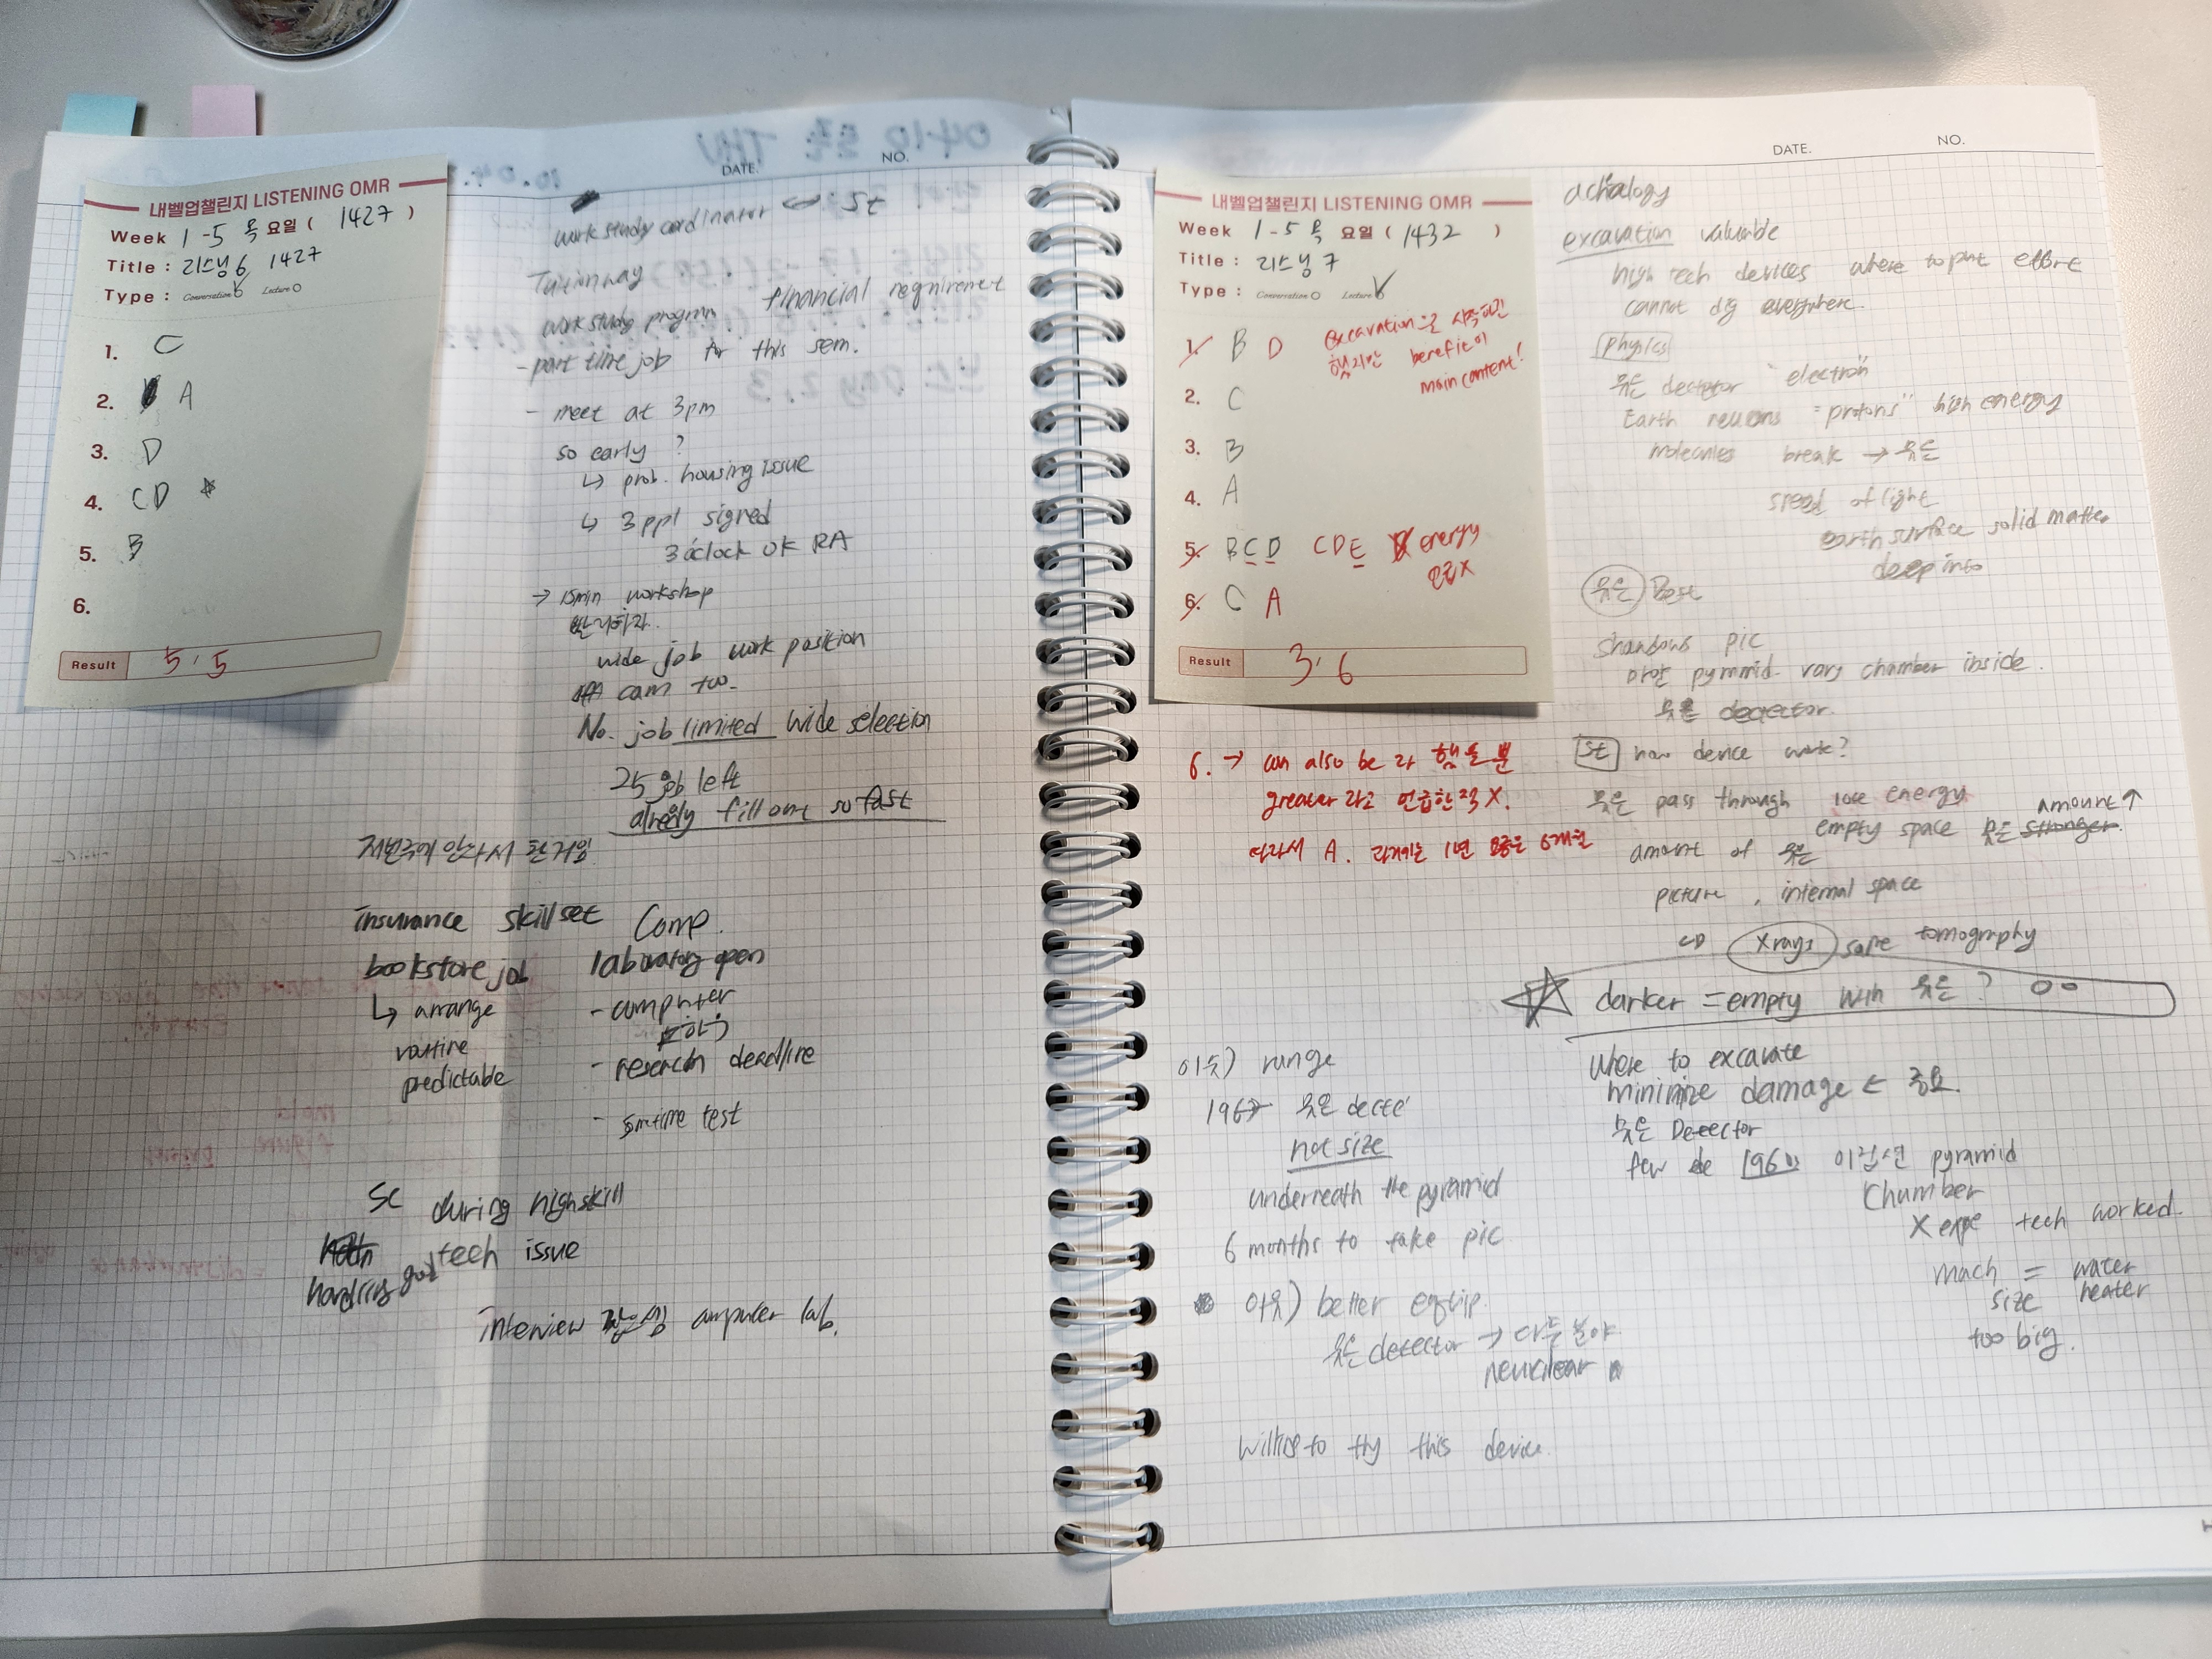 내벨업챌린지 LISTENING OMR
Week 1-5 목 요일 ( 1427 )
Title : 리스닝 6 1427
Type : Conversation Lecture
1. C
2. A
3. D
4. CD
5. B
6.
Result 5, 5
DATE. NO.
work study cordinator St
Tuitionway
financial requirement
work study program
- part time job for this sem.
- meet at 3pm
so early ?
↳ prob. housing issue
↳ 3 ppl signed
3 o'clock OK RA
→ 15min workshop
빨리하자.
wide job work position
cam too.
No. job limited wide selection
25 job left
already fill out so fast
저번주에 안와서 한거임
insurance skillset Comp.
bookstore job laboratory open
↳ arrange - computer
routine
predictable - research deadline
- test
SC during highskill
tech issue
handling good
interview computer lab.
DATE. NO.
내벨업챌린지 LISTENING OMR
Week 1-5 목 요일 ( 1432 )
Title : 리스닝 7
Type : Conversation Lecture
1. B D excavation을 시작하긴
했지만 benefit이
main content!
2. C
3. B
4. A
5. BCD CDE energy
언급X
6. C A
Result 3, 6
6. → can also be 라 했을 뿐
greater 라고 언급한적 X.
따라서 A. 과거에는 1년 요즘은 6개월
achalogy
excavation valuable
high tech devices where to put effort
cannot dig everywhere.
physics
뮤온 dectetor "electron"
Earth "protons" high energy
molecules break → 뮤온
speed of light
earth surface solid matter
deep into
뮤온 Best
shandows pic
마얀 pyramid vary chamber inside.
뮤온 detector.
St how device work?
뮤온 pass through lose energy
amount↑
empty space 뮤온 stronger
amount of 뮤온
picture , internal space
CD Xrays safe tomography
darker = empty with 뮤온 ?
where to excavate
minimize damage ← 중요.
뮤온 Detector
few de 1960 이집션 pyramid
Chamber
X expe tech worked.
mach = water
size heater
too big.
이슛) range
196 뮤온 decte
not size
underneath the pyramid
6 months to take pic
better equip.
뮤온 detector → 다른 분야
neuclear
willing to try this device.